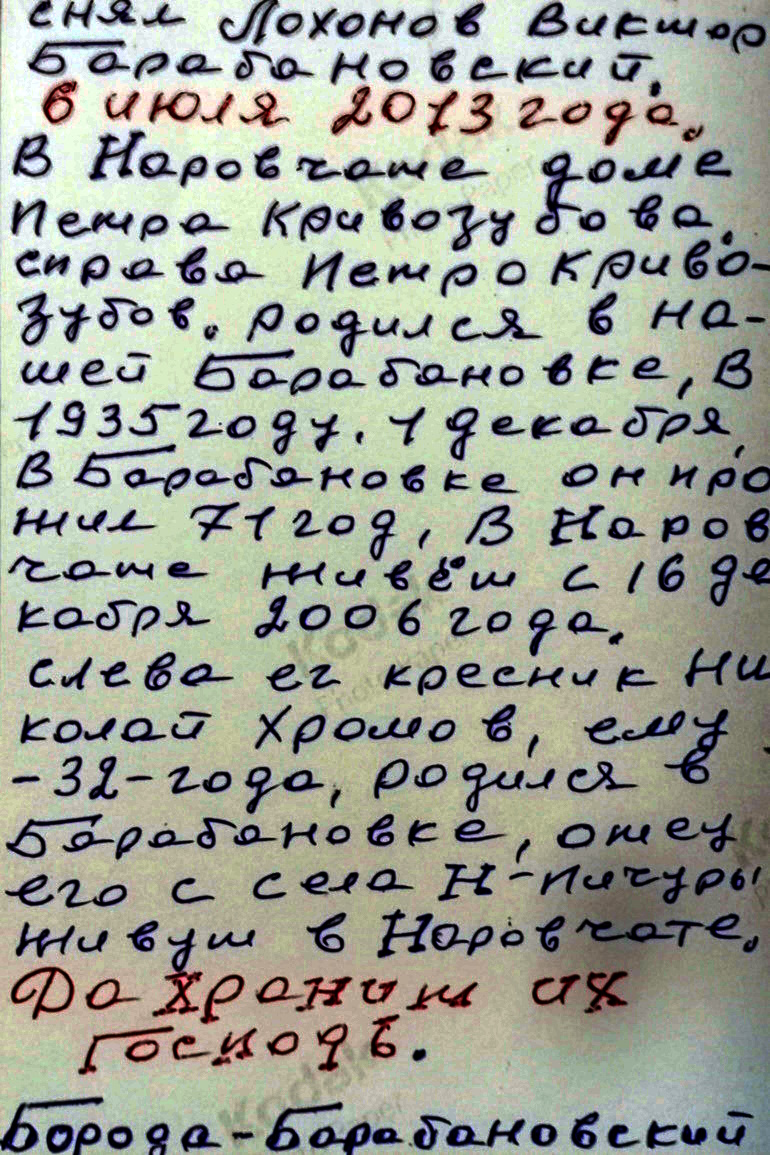 снял Лохонов Виктор
Барабановский.
6 июля 2013 года.
В Наровчате доме
Петра Кривозубова,
справа Петро Криво-
зубов. родился в на-
шей Барабановке, В
1935 году. 1 декабря,
В Барабановке он про
жил 71 год, В Наров
чате живёт с 16 де
кабря 2006 года.
слева ег кресник Ни
колай Хромов, ему
-32-года, родился в
Барабановке, отец
его с села Н-Пичуры
живут в Наровчате.
Да хранит их
Господь.
Борода-Барабановский